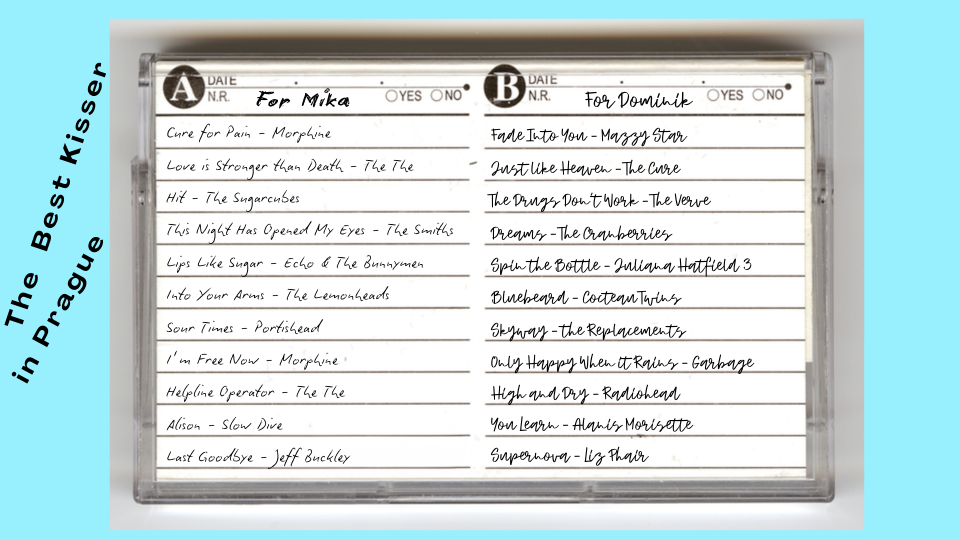 The Best Kisser
in Prague
A
DATE
N.R.
For Mika
YES NO
Cure for Pain - Morphine
Love is Stronger than Death - The The
Hit - The Sugarcubes
This Night Has Opened My Eyes - The Smiths
Lips Like Sugar - Echo & The Bunnymen
Into Your Arms - The Lemonheads
Sour Times - Portishead
I'm Free Now - Morphine
Helpline Operator - The The
Alison - Slow Dive
Last Goodbye - Jeff Buckley
B
DATE
N.R.
For Dominik
YES NO
Fade Into You - Mazzy Star
Just like Heaven - The Cure
The Drugs Don't Work - The Verve
Dreams - The Cranberries
Spin the Bottle - Juliana Hatfield 3
Bluebeard - Cocteau Twins
Skyway - the Replacements
Only Happy When it Rains - Garbage
High and Dry - Radiohead
You Learn - Alanis Morisette
Supernova - Liz Phair